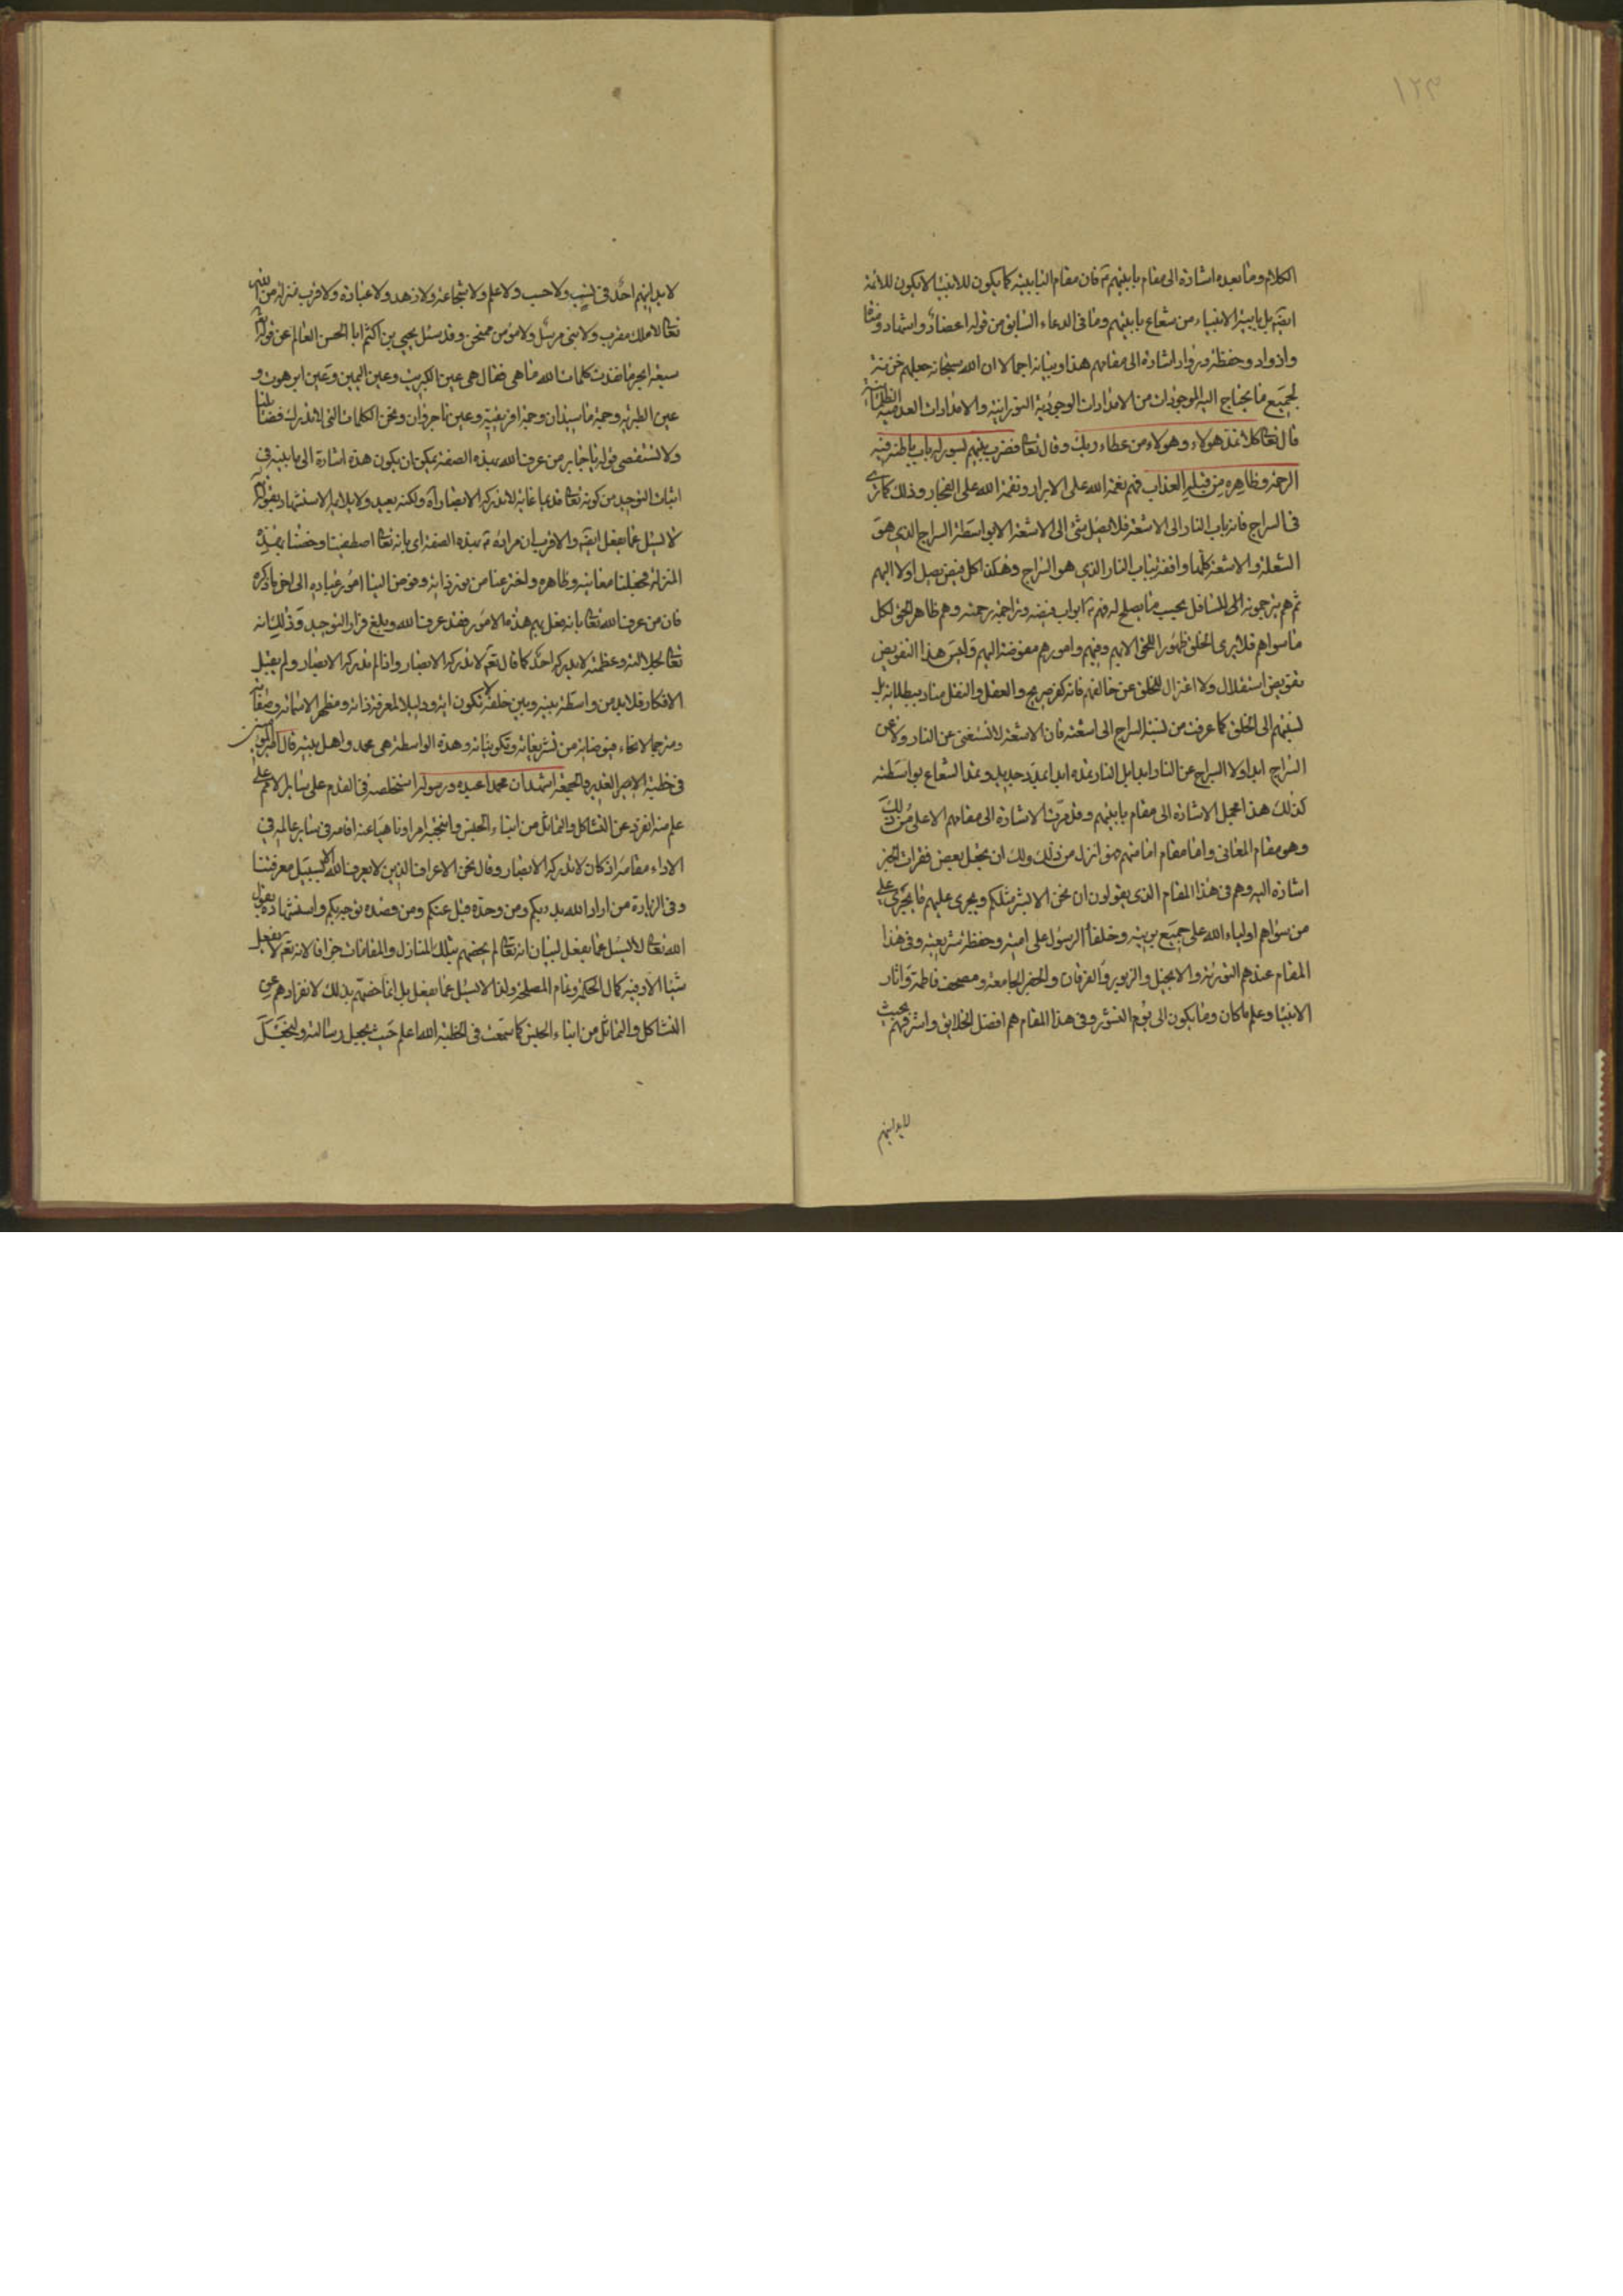 ١٢٣
الكلام وما بعده اشارة الى مقام بابيتهم ثم فان مقام البابية كما يكون للانبياء لا يكون للائمة
ايضا بل بابية الانبياء من شعاع بابيتهم وما فى الدعاء السابق من قوله اعضاد واشهاد ومناة
واذواد وحفظة ورواد اشارة الى مقامهم هذا وبيانه اجمالا ان الله سبحانه جعلهم خزنة
لجميع ما يحتاج اليه الموجودات من الامدادات الوجودية النورانية والامدادات العدمية الظلمانية
قال تعالى كلا نمد هولاء وهولاء من عطاء ربك وقال تعالى فضرب بينهم بسور له باب باطنه فيه
الرحمة وظاهره من قبله العذاب فهم نعمة الله على الابرار ونقمة الله على الفجار وذلك كما ترى
فى السراج فانه باب النار الى الاشعة فلا يصل شئ الى الاشعة الا بواسطة السراج الذي هو
الشعلة والاشعة كلها واقفة بباب النار الذي هو السراج وهكذا كل فيض يصل اولا اليهم
ثم هم يترجمونه الى السافل بحسب ما يصلح له فهم ابواب فيضه وتراجمة رحمته وهم ظاهر الحق لكل
ما سواهم فلا يرى الخلق ظهورا للحق الا بهم وفيهم وامورهم مفوضة اليهم وليس هذا التفويض
تفويض استقلال ولا اعتزال للخلق عن خالقهم فانه كفر صريح والعقل والنقل يناد ببطلانه بل
نسبتهم الى الخلق كما عرفت من نسبة السراج الى اشعته فان الاشعة لا تستغنى عن النار ولا عن
السراج ابدا ولا السراج عن النار ابدا بل النار تمده ابدا بمدد جديد وتمد الشعاع بواسطته
كذلك هذا مجمل الاشارة الى مقام بابيتهم وقد مرت الاشارة الى مقامهم الاعلى من ذلك
وهو مقام المعانى واما مقام امامتهم فهو انزل من ذلك ولك ان تجعل بعض فقرات الخبر
اشارة اليه وهم فى هذا المقام الذى يقولون ان نحن الا بشر مثلكم ويجرى عليهم ما يجرى على
من سواهم اولياء الله على جميع بريته وخلفاء الرسول على امته وحفظة شريعته وفى هذا
المقام عندهم التورية والانجيل والزبور والفرقان والجفر الجامعة ومصحف فاطمة واثار
الانبياء وعلم ما كان وما يكون الى يوم النشور وفى هذا المقام هم افضل الخلايق واشرفهم بحيث
لا يدانيهم
لا يدانيهم احد فى نسب ولا حسب ولا علم ولا شجاعة ولا زهد ولا عبادة ولا قرب منزلة من الله
تعالى لا ملك مقرب ولا نبى مرسل ولا مؤمن ممتحن وقد سئل يحيى بن اكثم ابا الحسن العالم عن قوله
سبعة ابحر ما نفدت كلمات الله ما هى فقال هى عين الكبريت وعين اليمين وعين ابرهوت و
عين الطبرية وحمة ماسبذان وحمة افريقية وعين باجروان ونحن الكلمات التى لا تدرك فضائلنا
ولا تستقصى قوله يا جابر من عرف الله بهذه الصفة يمكن ان يكون هذه اشارة الى ما بينه فى
اثبات التوحيد من كونه تعالى قديما غائبا لا تدركه الابصار اه ولكنه بعيد ولا يلايمه الاستشهاد بقوله
لا يسئل عما يفعل ايضا والاقرب ان مراده بهذه الصفة اى بانه تعالى اصطفينا وخصنا بهذه
المنزلة فجعلنا معانيه وظاهره واخترعنا من نور ذاته وفوض الينا امور عباده الى اخر ما ذكره
فان من عرف الله تعالى بانه فعل بهم هذه الامور فقد عرف الله وبلغ قرار التوحيد وذلك لانه
تعالى لجلالته وعظمته لا يدركه احد كما قال تعالى لا تدركه الابصار واذا لم تدركه الابصار ولم يقبل
الافكار فلا بد من واسطة بينه وبين خلقه لا تكون اية ودليلا لمعرفة ذاته ومظهر الاسمائه وصفاته
ومترجما لانحاء فيوضاته من تشريعاته وتكويناته وهذه الواسطة هى محمد واهل بيته قال امير المؤمنين
فى خطبة الامير الغدير والجمعة اشهد ان محمدا عبده ورسوله استخلصه فى القدم على سائر الامم على
علم منه انفرد عن التشاكل والتماثل من ابناء الجنس وانتجبه امرا وناهيا عنه اقامه فى سائر عالمه فى
الاداء مقامه اذ كان لا تدركه الابصار وقال نحن الاعراف الذين لا يعرف الله الا بسبيل معرفتنا
وفى الزيارة من اراد الله بدء بكم ومن وحده قبل عنكم ومن قصده توجه بكم واستشهاده بقول
الله تعالى لا يسئل عما يفعل لبيان انه تعالى لم يخصهم بتلك المنازل والمقامات جزافا لانه تعالى لا يفعل
شيئا الا وفيه كمال الحكمة وتمام المصلحة ولذا لا يسئل عما يفعل بل انما خصهم بذلك لانفرادهم عن
التشاكل والتماثل من ابناء الجنس كما سمعت فى الخطبة الله اعلم حيث يجعل رسالته